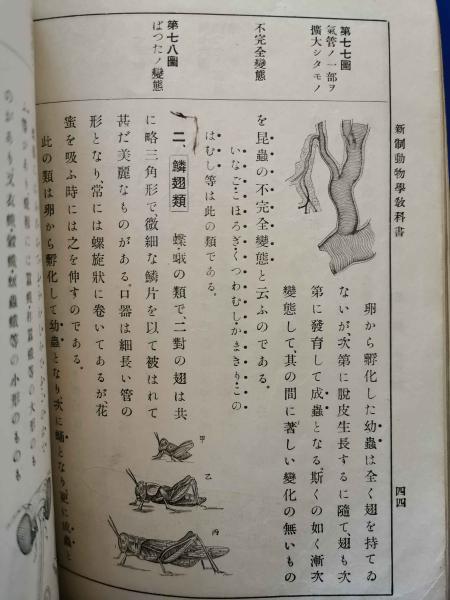 新制動物學敎科書
四四
第七七圖
氣管ノ一部ヲ
擴大シタモノ
不完全變態
第七八圖
ばつたノ變態
卵から孵化した幼蟲は全く翅を持てゐ
ないが、次第に脫皮生長するに隨て、翅も次
第に發育して成蟲となる。斯くの如く漸次
變態して、其の間に著しい變化の無いもの
を昆蟲の不完全變態と云ふのである。
いなご・こほろぎ・くつわむし・かまきり・この
はむし等は此の類である。
二、鱗翅類 蝶・蛾の類で、二對の翅は共
に略三角形で、微細な鱗片を以て被はれて
甚だ美麗なものがある。口器は細長い管の
形となり、常には螺旋狀に卷いてあるが、花
蜜を吸ふ時には之を伸すのである。
此の類は卵から孵化して幼蟲となり、次に蛹となり、更に成蟲と
甲
乙
丙
等の小形のものも